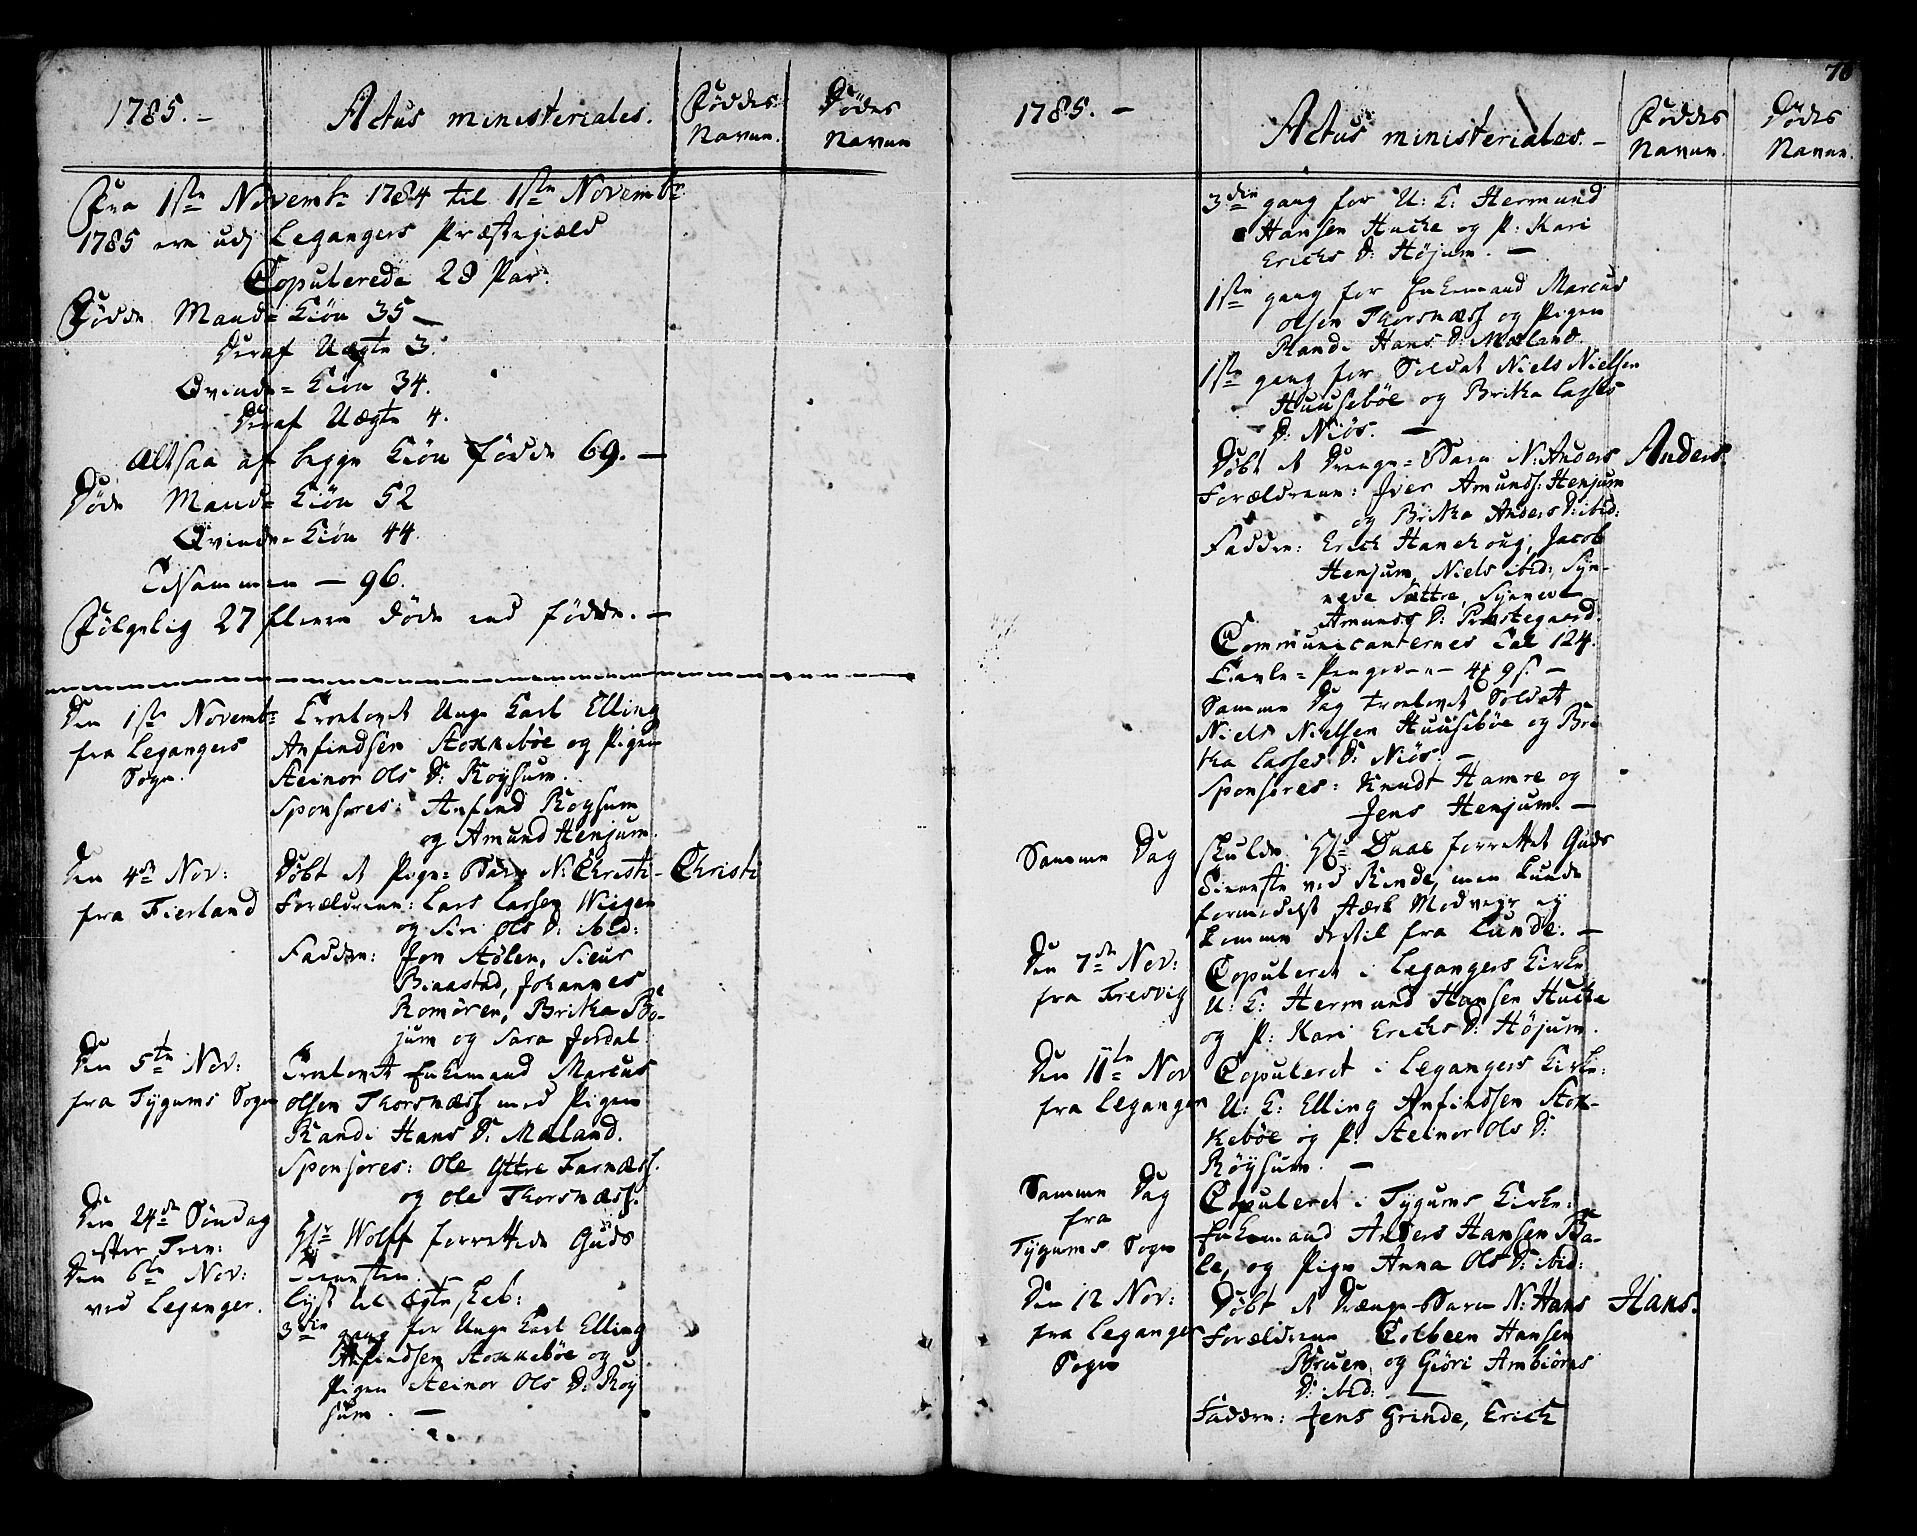 1785. -
Actus ministeriales.
Föddes Navne.
Dödes Navne
Fra 1ste Novembr 1784 til 1ste Novembr
1785 ere udj Legangers Præstegield
Copulerede 29 Par.
Födde Mand-Kiön 35 -
Deraf Uægte 3.
Qvinde-Kiön 34.
Deraf Uægte 4.
Altsaa af begge Kiön födde 69. -
Döde Mand-Kiön 52
Qvinde-Kiön 44
Tilsammen - 96.
Fölgelig 27 fleere döde end födde. -
Den 1ste Novembr
fra Legangers
Sogn.
Troelovet Unge Karl Elling
Anfindsen Stokkebøe og Pigen
Steinor Ols D: Röysum.
Sponsores: Anfind Röysum
og Amund Henjum.
Den 4de Nov:
fra Fierland
Döbt et Pige-Barn N: Christi- Christi
Forældrene: Lars Larsen Wiigen
og Siri Ols D: ibid:
Faddere: Jon Stölen, Siur
Binastad, Johannes
Romören, Britha Bö-
jum og Sara Jordal
Den 5te Nov:
fra Tygums Sogn
Troelovet Enkemand Marcus
Olsen Thorsnæss med Pigen
Randi Hans D: Mæland.
Sponsores: Ole Yttre Farnæss.
og Ole Thorsnæss.
Den 24de Söndag
efter Trin:
Hr Wolff forrettede Guds
Tienesten.
Den 6te Nov:
ved Leganger.
Lyst til Ægteskab:
3die gang for Unge Karl Elling
Anfindsen Stokkebøe og
Pigen Steinor Ols D: Röy
sum. -
70
1785. -
Actus ministeriales. -
Föddes Navne.
Dödes Navne.
3die gang for U: K: Hermund
Hansen Hucke og P: Kari
Erichs D: Höjum. -
1ste gang for Enkemand Marcus
Olsen Thorsnæss og Pigen
Randi Hans D: Mæland
1ste gang for Soldat Niels Nielsen
Huusebøe og Britha Lasses
D: Niös. -
Döbt et Drenge-Barn N: Anders Anders.
Forældrene: Iver Amunds: Henjum
og Britha Anders D: ibid:
Faddere: Erich Hanehoug, Jacob
Henjum, Niels ibid:, Syn-
neve Sættre, Synnevt
Amunds D: Præstegaard.
Communicanternes Tal 124.
Tavle-Pengene - 4 9 s. -
Samme Dag troelovet Soldat
Niels Nielsen Huusebøe og Bri
tha Lasses D: Niös. -
Sponsores: Knudt Hamre og
Jens Henjum. -
Samme Dag
skulde Hr Daae forrettet Guds
Tieneste ved Rinde, men kunde
formedelst stærk Modvejr ej
komme dertil fra Lunde. -
Den 7de Nov:
fra Fresvig
Copuleret i Legangers Kirke
U: K: Hermund Hansen Hucke
og P: Kari Erichs D: Höjum.
Den 11te Nov
fra Leganger
Copuleret i Legangers Kirke:
U: K: Elling Anfindsen Stok-
kebøe og P: Steinor Ols D:
Röysum. -
Samme Dag
fra
Tygums Sogn
Copuleret i Tygums Kirke:
Enkemand Anders Hansen Ba-
le, og Pige Anna Ols D: ibid:
Den 12 Nov:
fra Leganger
Sogn
Döbt et Drenge-Barn N: Hans Hans.
Forældrene Colbeen Hansen
Bruen, og Giöri Ambiörns
D: ibid: -
Faddere: Jens Grinde, Erich